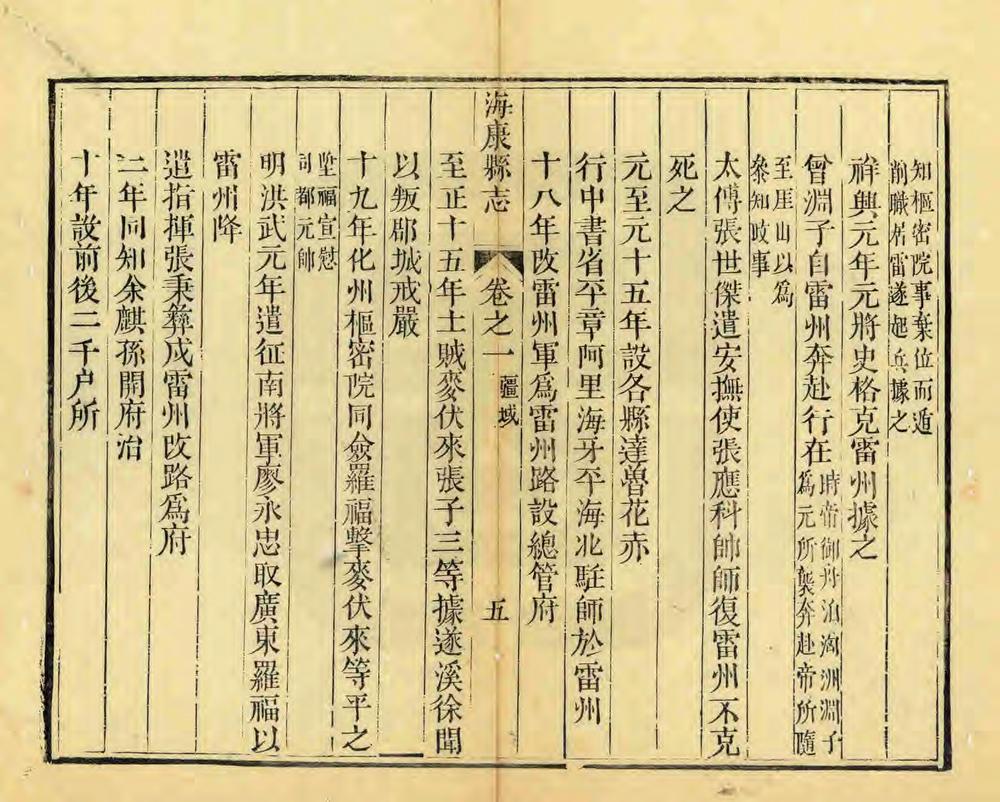 知樞密院事棄位而遁
削職居雷遂起兵據之
祥興元年元將史格克雷州據之
曾淵子自雷州奔赴行在時帝御舟泊㓥洲淵子
為元所襲奔赴帝所隨
至厓山以為
叅知政事
太傅張世傑遣安撫使張應科帥師復雷州不克
死之
元至元十五年設各縣達魯花赤
行中書省平章阿里海牙平海北駐師於雷州
十八年改雷州軍為雷州路設總管府
海康縣志 卷之一 疆域 五
至正十五年土賊麥伏來張子三等據遂溪徐聞
以叛郡城戒嚴
十九年化州樞密院同僉羅福擊麥伏來等平之
陞福宣慰
司都元帥
明洪武元年遣征南將軍廖永忠取廣東羅福以
雷州降
遣指揮張秉彝戍雷州改路為府
二年同知余麒孫開府治
十年設前後二千戶所